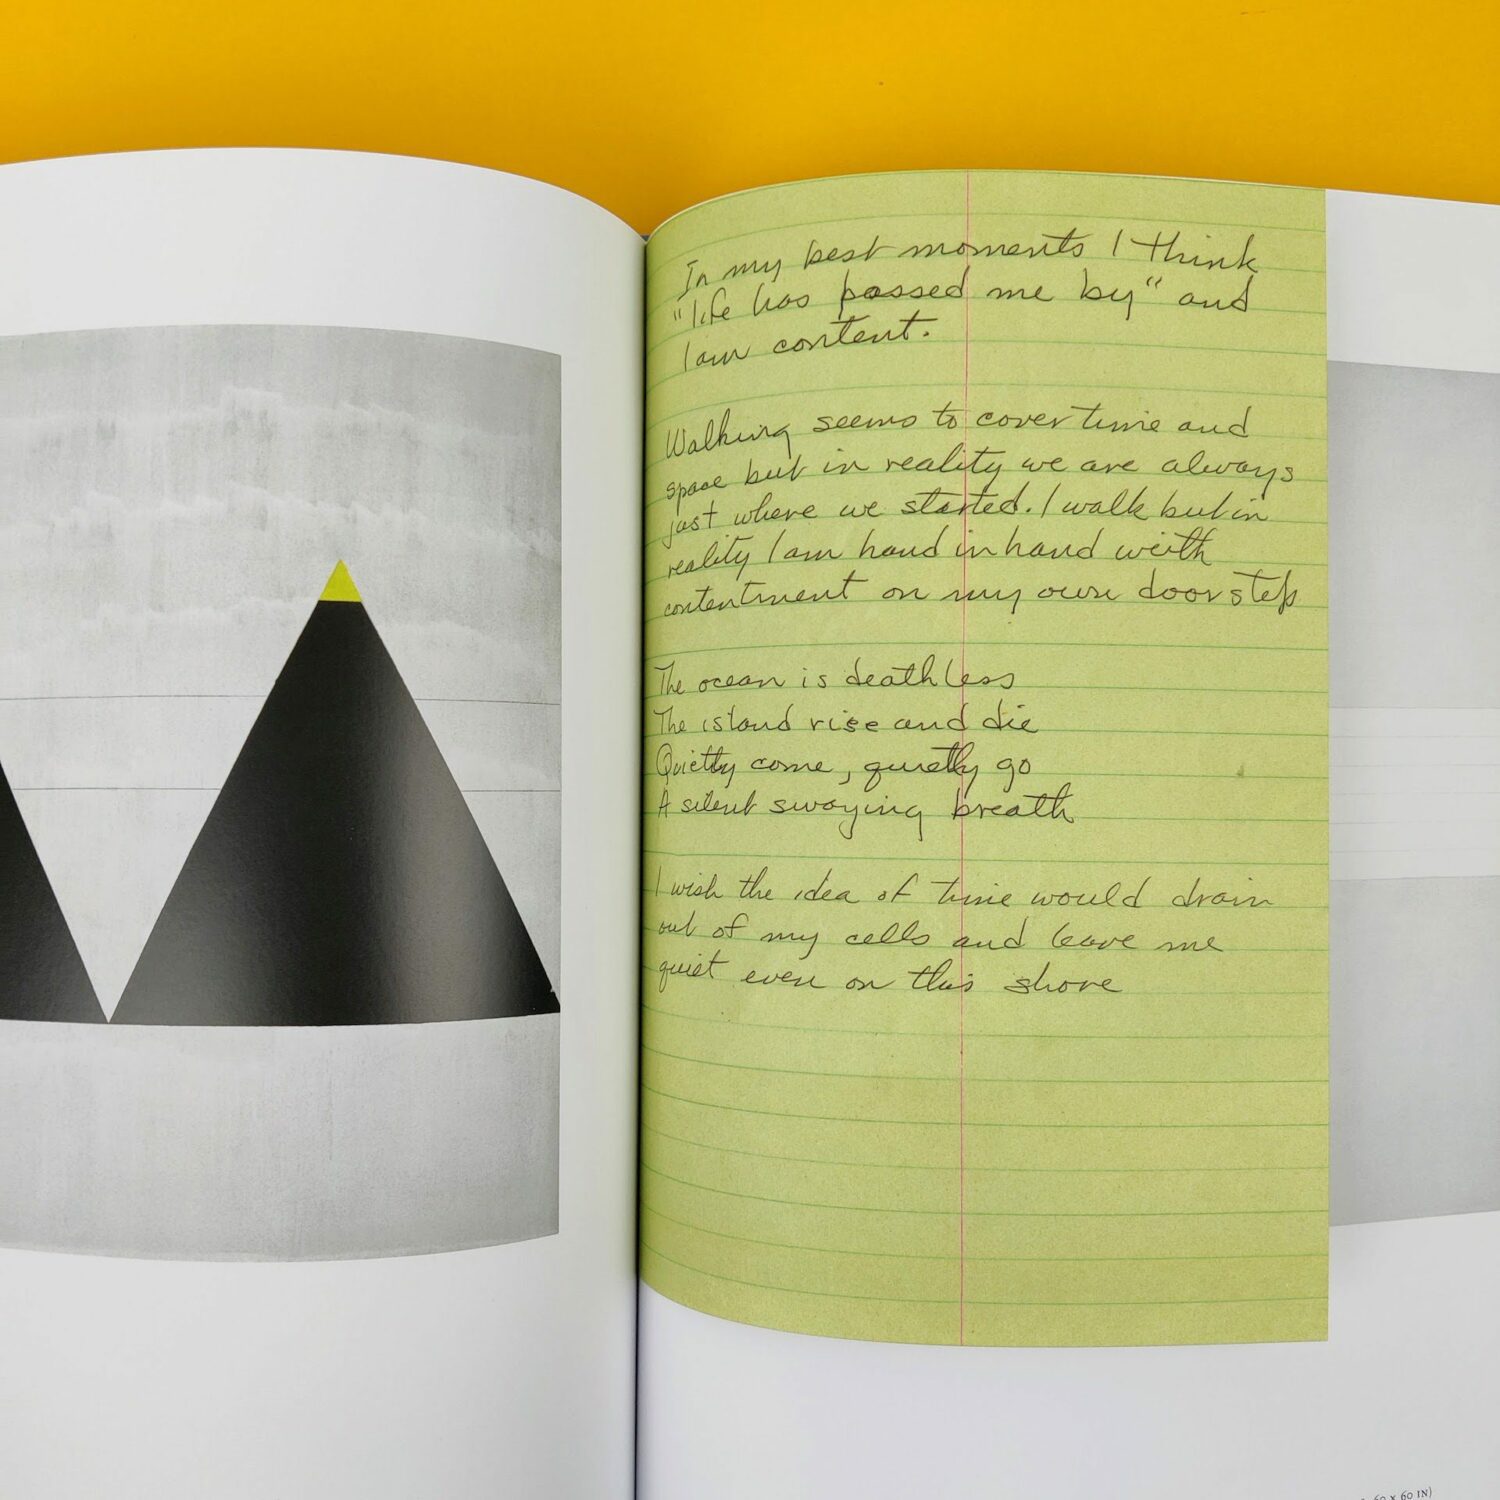 In my best moments I think
"life has passed me by" and
I am content.
Walking seems to cover time and
space but in reality we are always
just where we started. I walk but in
reality I am hand in hand with
contentment on my own doorstep
The ocean is deathless
The island rise and die
Quietly come, quietly go
A silent swaying breath
I wish the idea of time would drain
out of my cells and leave me
quiet even on this shore
60 x 60 IN)